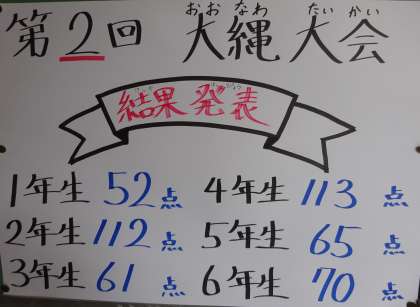 おおなわ たいかい
第2回 大縄大会
結果発表
1年生 52点 4年生 113点
2年生 112点 5年生 65点
3年生 61点 6年生 70点